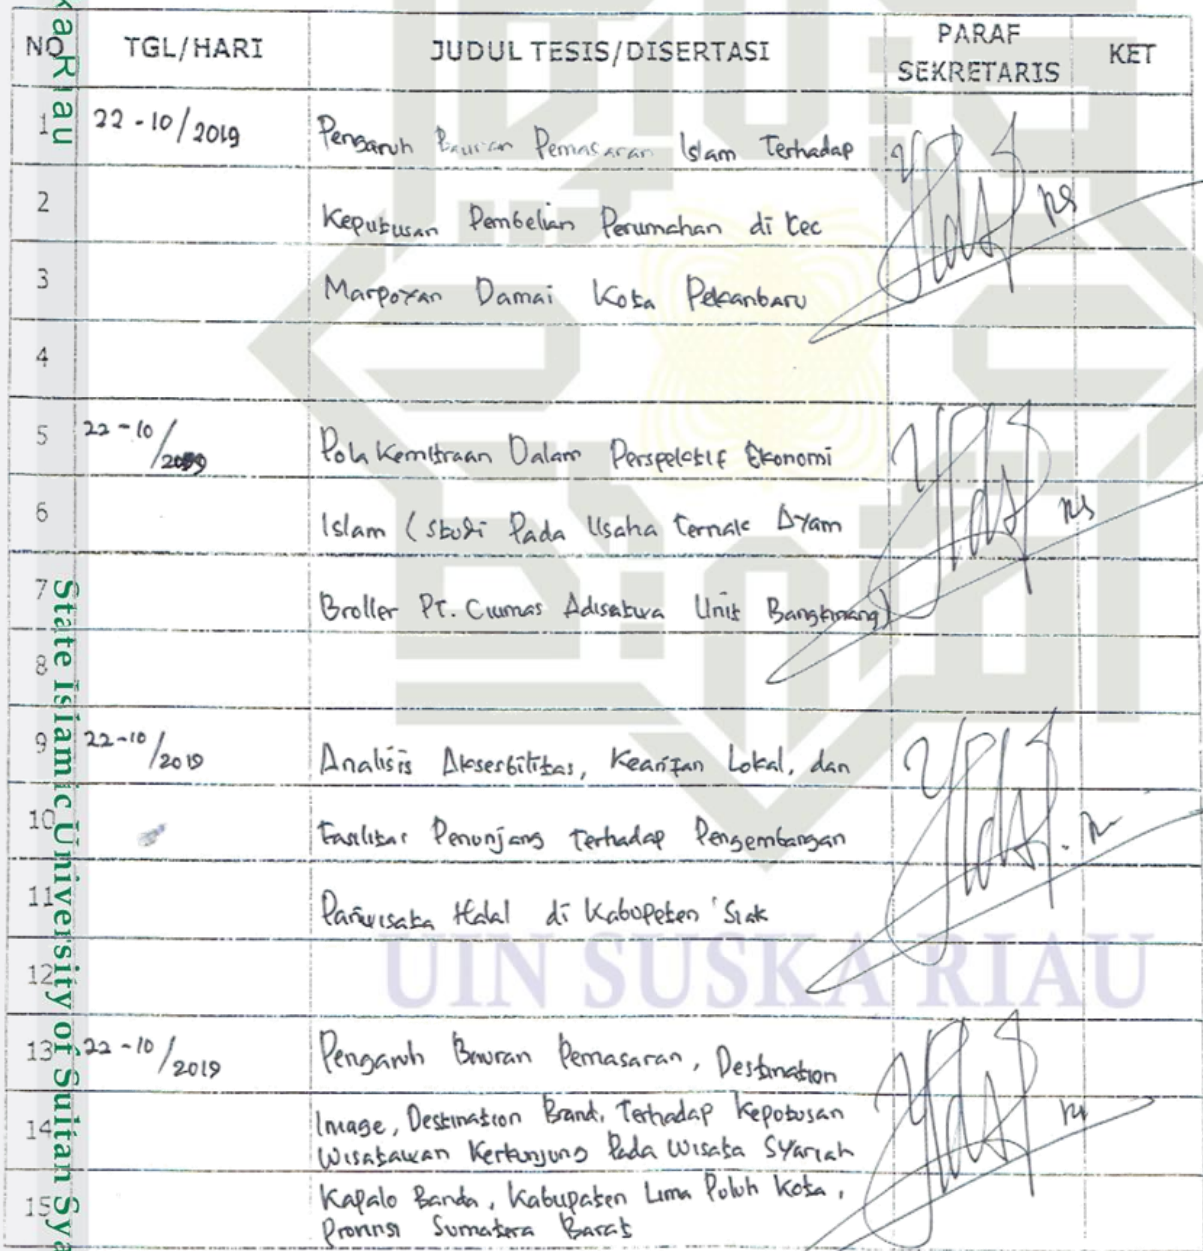 NO TGL/HARI JUDUL TESIS/DISERTASI PARAF SEKRETARIS KET
1 22-10/2019 Pengaruh Bauran Pemasaran Islam Terhadap
2 Keputusan Pembelian Perumahan di Kec
3 Marpoyan Damai Kota Pekanbaru
4
5 22-10/2019 Pola Kemitraan Dalam Perspektif Ekonomi
6 Islam (Studi Pada Usaha Ternak Ayam
7 Broller PT. Ciumas Adisatwa Unit Bangkinang)
8
9 22-10/2019 Analisis Aksesbilitas, Kearifan Lokal, dan
10 Fasilitas Penunjang Terhadap Pengembangan
11 Pariwisata Halal di Kabupeten Siak
12
13 22-10/2019 Pengaruh Bauran Pemasaran, Destination
14 Image, Destination Brand, Terhadap Keputusan
Wisatawan Kertunjung Pada Wisata Syariah
15 Kapalo Banda, Kabupaten Lima Puluh Kota,
Provinsi Sumatera Barat
UIN SUSKA RIAU
ka Riau
State Islamic University of Sultan Sya